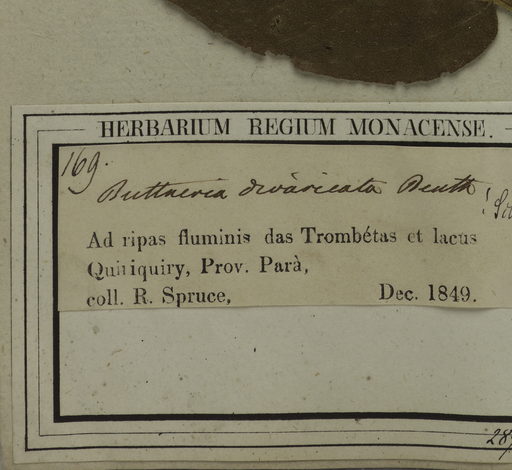 HERBARIUM REGIUM MONACENSE.
169.
Buttneria divaricata Benth
Ad ripas fluminis das Trombétas et lacus
Quiriquiry, Prov. Parà,
coll. R. Spruce, Dec. 1849.